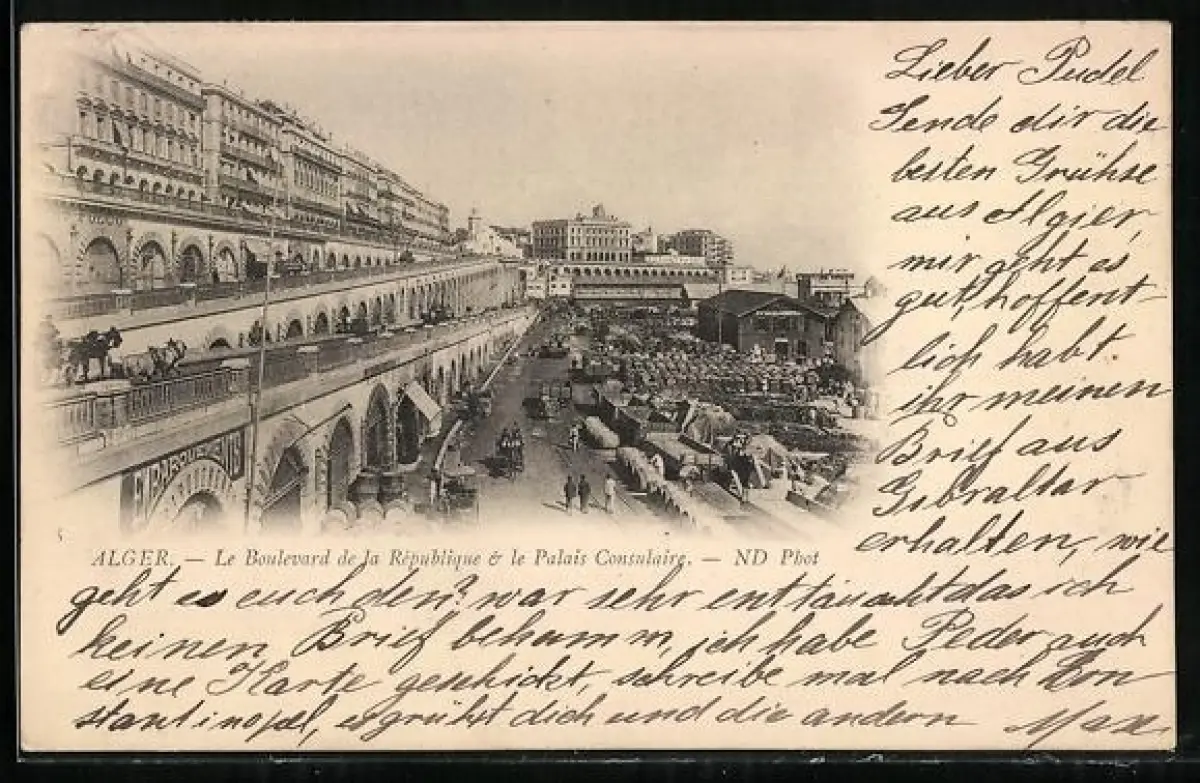 Lieber Pudel
Sende dir die
besten Grühse
aus Algier,
mir geht es
gut, hoffent-
lich habt
ihr meinen
Brief aus
Gibraltar
erhalten, wie
EMBARQUEMENTS
ALGER. — Le Boulevard de la République & le Palais Consulaire. — ND Phot
geht es euch den? war sehr enttäuscht das ich
keinen Brief bekamm, ich habe Peder auch
eine Karte geschickt, schreibe mal nach Kon
stantinopel, es grühst dich und die andern Max